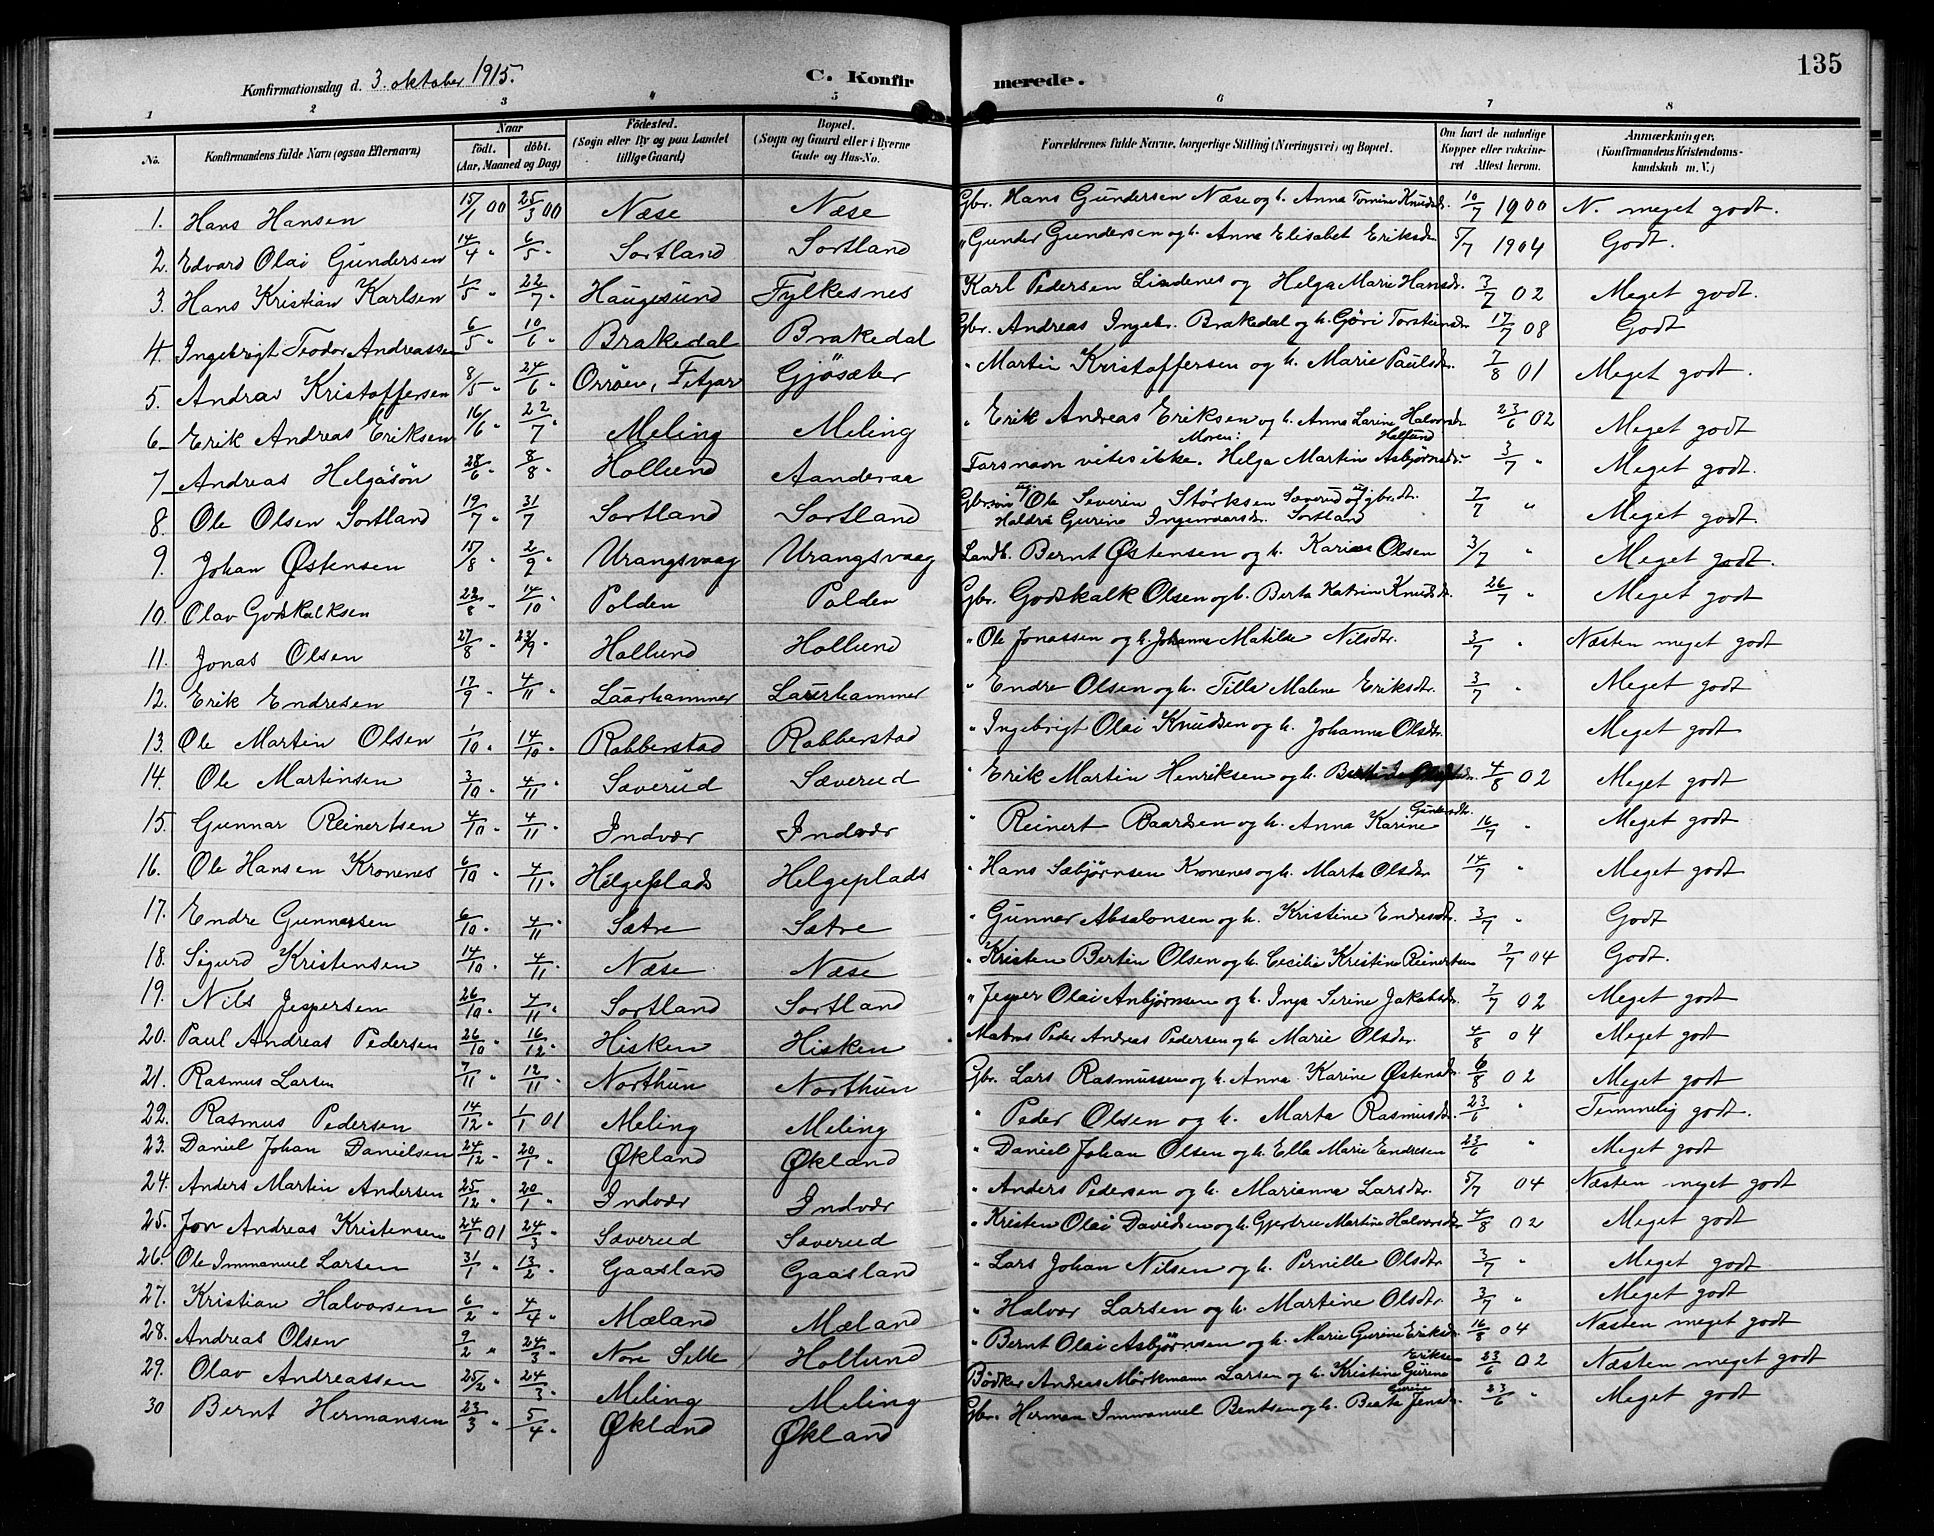 135
Konfirmationsdag d. 3 oktober 1915.
C. Konfirmerede.
1 2 3 4 5 6 7 8
No.
Konfirmandens fulde Navn (ogsaa Efternavn)
Naar
født. døbt.
(Aar, Maaned og Dag)
Fødested.
(Sogn eller By og paa Landet tillige Gaard)
Bopæl.
(Sogn og Gaard eller i Byerne Gade og Hus-No.
Forældrenes fulde Navne, borgerlige Stilling (Næringsvei) og Bopæl.
Om havt de naturlige Kopper eller vaccineret Attest herom.
Anmærkninger.
(Konfirmandens Kristendomskundskab m. V.)
1. Hans Hansen 15/1 00 25/3 00 Næse Næse Gbr. Hans Gundersen Næse og h. Anna Tomine Knudsdr. 10/7 1900 N. meget godt.
2. Edvard Olai Gundersen 14/4 " 6/5 " Sortland Sortland " Gunder Gundersen og h. Anna Elisabet Eriksdr 5/7 1904 Godt.
3. Hans Kristian Karlsen 1/5 " 22/7 " Haugesund Fylkesnes Karl Pedersen Lindenes og Helga Marie Hansdr. 3/7 02 Meget godt.
4. Ingebrigt Teodor Andreassen 6/5 " 10/6 " Brakedal Brakedal Gbr. Andreas Ingebr. Brakedal og h. Göri Torsteinsdr 17/7 08 Godt
5. Andrav Kristoffersen 8/5 " 24/6 " Orröen, Fitjar Gjösæter " Martin Kristoffersen og h. Marie Paulsdr. 7/8 01 Meget godt.
6. Erik Andreas Eriksen 16/6 " 22/7 " Meling Meling " Erik Andreas Eriksen og h. Anna Larine Halvorsdr 23/6 02 Meget godt
7. Andreas Helgasön 28/6 " 8/8 " Hollund Aanderaa Farsnavn vites ikke. Moren: Helga Martine Asbjørnsdr. Hollund 3/7 " Meget godt.
8. Ole Olsen Sortland 19/7 " 31/7 Sortland Sortland Gbr. Ole Severin Størksen Sæverud og gbr.dt.
Haldra Gurine Ingemaarsdr. Sortland 7/7 " Meget godt.
9. Johan Østensen 15/8 " 2/9 " Urangsvaag Urangsvaag Landh. Bernt Østensen og h. Karine Olsen 3/7 " Meget godt.
10. Olav Godskalksen 22/8 " 14/10 " Polden Polden Gbr. Godskalk Olsen og h. Berta Katrine Knudsdr. 26/7 " Meget godt
11. Jonas Olsen 27/8 " 23/9 " Hollund Hollund " Ole Jonassen og h. Johanna Matilde Nilsdtr. 3/7 " Næsten meget godt
12. Erik Endresen 17/9 " 4/11 " Laurhammer Laurhammer " Endre Olsen og h. Tilla Malene Eriksdtr. 3/7 " Meget godt
13. Ole Martin Olsen 1/10 " 14/10 " Rabberstad Rabberstad " Ingebrigt Olai Knudsen og h. Johanna Olsdtr. Meget godt
14. Ole Martinsen 3/10 " 4/11 " Sæverud Sæverud " Erik Martin Henriksen og h. 4/8 02 Meget godt
15. Gunnar Reinertsen 4/10 " 4/11 " Indvær Indvær " Reinert Baardsen og h. Anna Karine Gundersdtr. 16/7 " Meget godt
16. Ole Hansen Kronenes 6/10 " 4/11 " Helgeplads Helgeplads " Hans Sæbjørnsen Kronenes og h. Marta Olsdtr 14/7 " Meget godt
17. Endre Gunnarsen 6/10 " 4/11 " Sætre Sætre " Gunnar Absalonsen og h. Kristine Endresdtr. 3/7 " Godt
18. Sigurd Kristensen 14/10 " 4/11 " Næse Næse " Kristen Bertin Olsen og h. Cecilie Kristine Reinertsen 7/7 04 Godt.
19. Nils Jespersen 26/10 " 4/11 " Sortland Sortland " Jesper Olai Anbjørnsen og h. Inga Serine Jakobsdr. 7/7 02 Meget godt
20. Paul Andreas Pedersen 26/10 " 16/12 " Hisken Hisken Matros Peder Andreas Pedersen og h. Marie Olsdtr. 4/8 04 Meget godt
21. Rasmus Larsen 7/11 " 12/11 " Northun Northun Gbr. Lars Rasmussen og h. Anna Karine Østensdr 6/8 02 Meget godt
22. Rasmus Pedersen 14/12 " 1/1 01 Meling Meling " Peder Olsen og h. Marta Rasmusdtr. 23/6 " Temmelig godt.
23. Daniel Johan Danielsen 24/12 " 20/1 " Økland Økland " Daniel Johan Olsen og h. Ella Marie Endresen 23/6 " Meget godt
24. Anders Martin Andersen 25/12 " 20/1 " Indvær Indvær " Anders Pedersen og h. Marianna Larsdtr. 5/7 04 Næsten meget godt
25. Jon Andreas Kristensen 24/1 01 24/3 " Sæverud Sæverud " Kristen Olai Davidsen og h. Gjertrue Martine Halvorsdtr 4/8 02 Meget godt
26. Ole Immanuel Larsen 31/1 " 13/2 " Gaasland Gaasland " Lars Johan Nilsen og h. Pernille Olsdtr 3/7 " Meget godt
27. Kristian Halvorsen 6/2 " 4/4 " Mæland Mæland " Halvor Larsen og h. Martine Olsdtr. 3/7 " Meget godt
28. Andreas Olsen 9/2 " 24/3 " Nore Selle Hollund " Bernt Olai Asbjørnsen og h. Marie Gurine Eriksdr 16/8 04 Næsten meget godt
29. Olav Andreassen 25/2 " 24/3 " Meling Meling Bødker Andreas Mörkmann Larsen og h. Kristine Gurine Eriksen 23/6 02 Næsten meget godt
30 Bernt Hermansen 23/3 " 5/4 " Økland Økland Gbr. Herman Immanuel Bentsen og h. Berta Gurine Jensdr. 23/6 " Meget godt